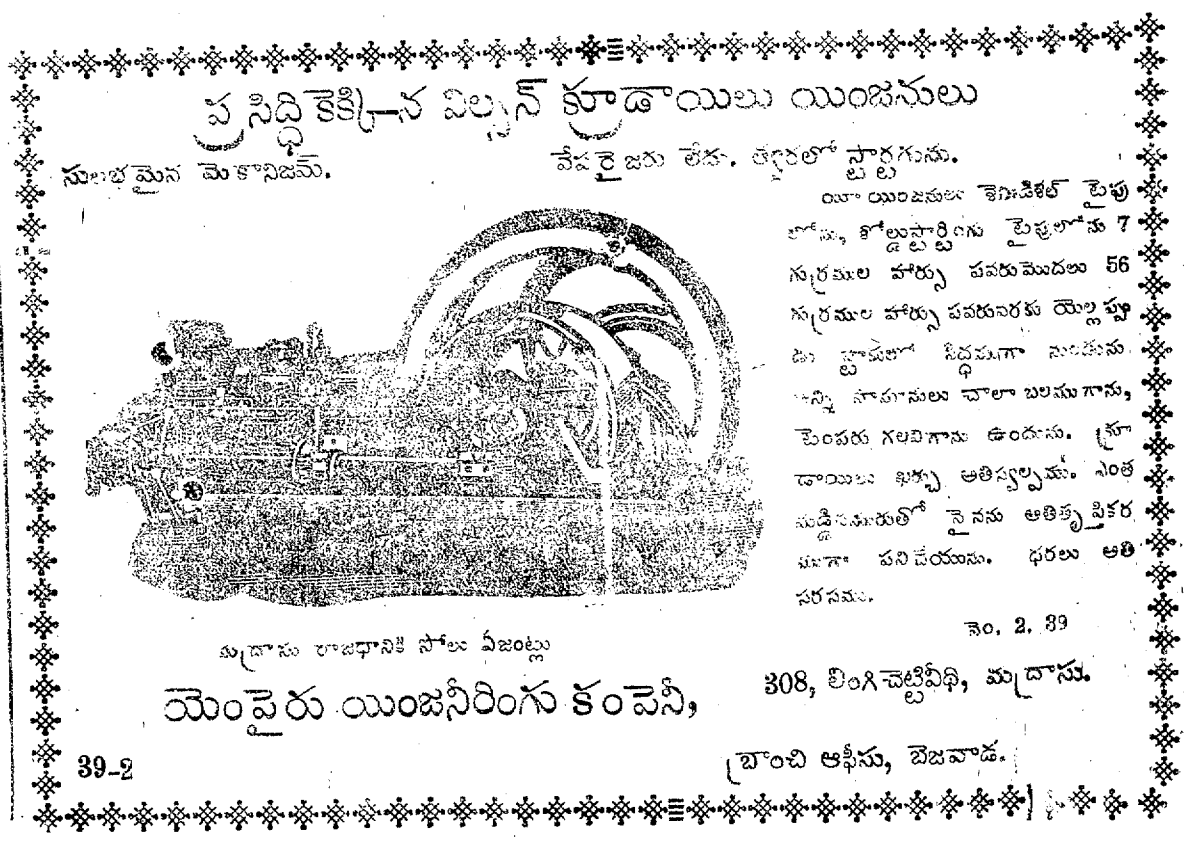 ప్రసిద్ధికెక్కిన విల్సన్ క్రూడాయిలు యింజనులు
సులభమైన మెకానిజమ్. వేపరైజరు లేదు. త్వరలో స్టార్టగును.
యీ యింజనులు శెమిడీశల్ టైపు
లోను, కోల్డుస్టార్టింగు టైపులోను 7
గుర్రముల హార్సు పవరుమొదలు 56
గుర్రముల హార్సు పవరువరకు యెల్లప్పు
డు స్టాకులో సిద్ధముగా నుండును
అన్ని సామానులు చాలా బలముగాను,
టెంపరు గలవిగాను ఉండును. క్రూ
డాయిలు ఖర్చు అతిస్వల్పము. ఎంత
మడ్డిచమురుతో నైనను అతితృప్తికర
ముగా పనిచేయును. ధరలు అతి
సరసము.
నెం. 2. 39
మద్రాసు రాజధానికి సోలు ఏజంట్లు
యెంపైరు యింజనీరింగు కంపెనీ, 308, లింగిచెట్టివీథి, మద్రాసు.
39-2 బ్రాంచి ఆఫీసు, బెజవాడ.